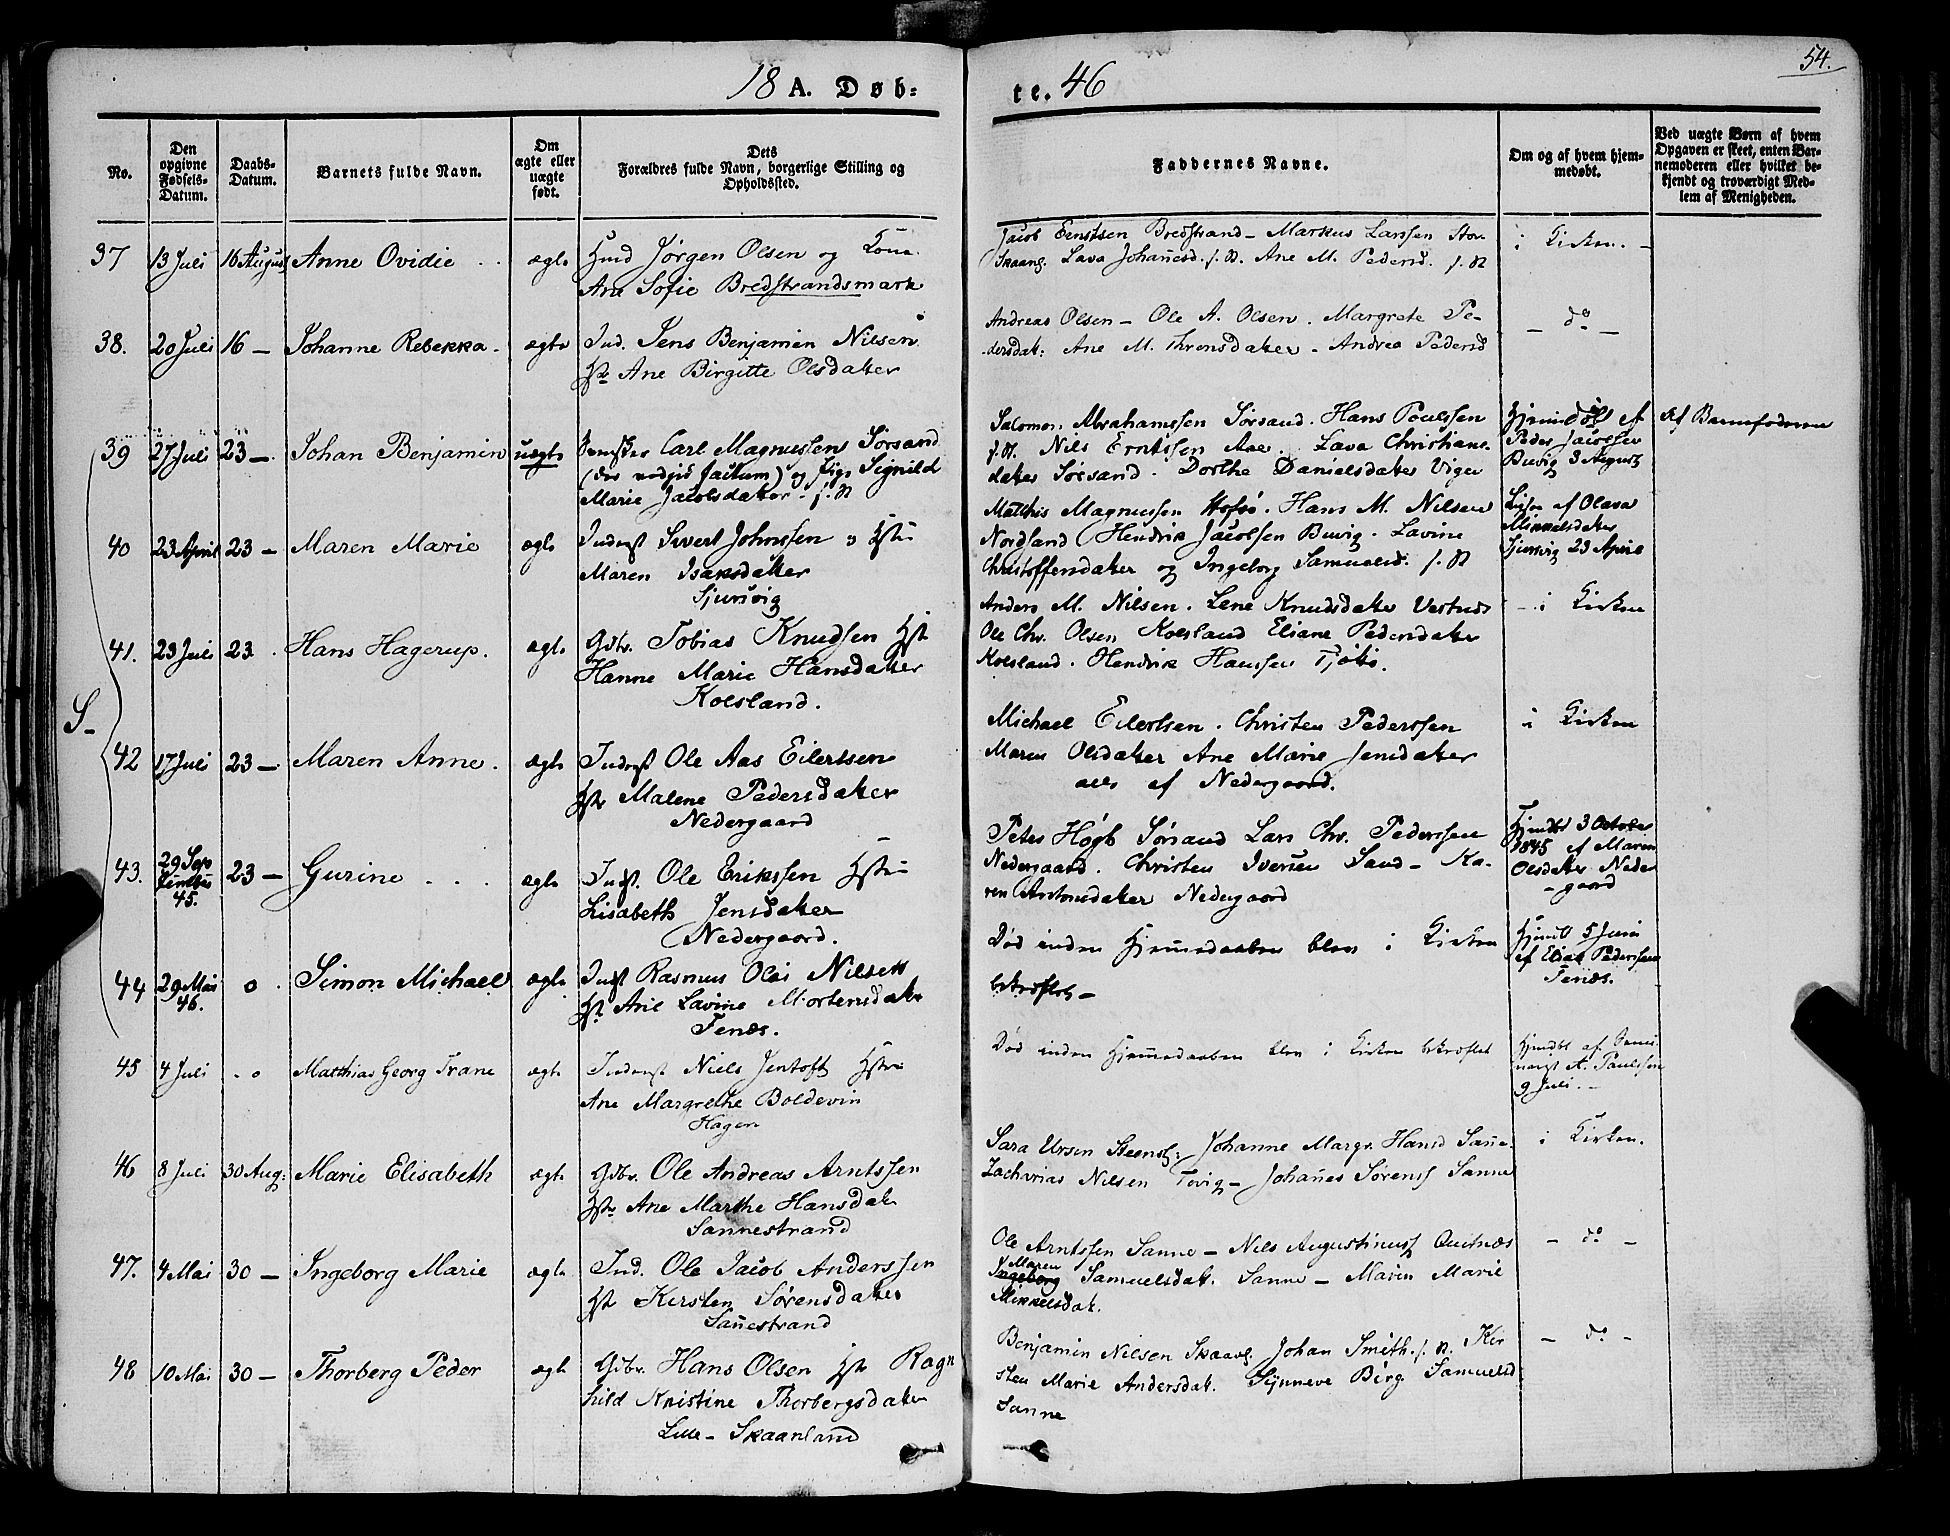 54.
18 A. Døb=te. 46
No.
Den opgivne Fødsels-Datum.
Daabs-Datum.
Barnets fulde Navn.
Om ægte eller uægte født.
Dets Forældres fulde Navn, borgerlige Stilling og Opholdssted.
Faddernes Navne.
Om og af hvem hjemmedøbt.
Ved uægte Børn af hvem Opgaven er skeet, enten Barnemoderen eller hvilket bekjendt og troværdigt Medlem af Menigheden.
37 13 Juli 16 August Anne Ovidie ægte
Hmd Jørgen Olsen og Kone
Ane Sofie Bredstrandsmark
Jacob Bredstrand - Markus Larssen Stor
Skaanl. Lava Johañesd. s. St. Ane M. Pedersd. s. St
i Kirken. -
38. 20 Juli 16 - Johanne Rebekka. ægte
Ind. Jens Benjamin Nilsen
Hst Ane Birgitte Olsdatter
Andreas Olsen - Ole A. Olsen. Margrete Pe-
dersdat: Ane M. Thronsdatter - Andrea Pedersd
- do -
39 27 Juli 23 - Johan Benjamin uægte
Carl Magnussen Sørsand
og Pige Signild
Marie Jacobsdatter - s. St
Salomon Abrahamssen Sørsand. Hans Poulssen
s. St. Nils Erntssen Lava Christians-
datter Sørsand. Dorthe Danielsdatter
Hjemdøbt af
Peder Jacobsen
Buvig 3 August
Af Barnefaderen
40 23 April 23 - Maren Marie ægte
Inderst Sivert Johnssen Hstru
Maren Isaksdatter
Sjursvig
Matthis Magnussen Hofsø. Hans M. Nilsen
Nordsand Hendrik Jacobsen Buvig. Lavine
Christoffersdatter og Ingeborg Samuelsd. s. St
af Olava
Mikkelsdatter
Sjursvig 23 April
41. 23 Juli 23. Hans Hagerup. ægte
Gdbr. Tobias Knudsen Hst
Hanne Marie Hansdatter
Kolsland.
Anders M. Nilsen. Lene Knudsdatter
Ole Chr. Olsen Kolsland Eliane Pedersdatter
Kolsland. Hendrik Hanssen
- i Kirken
S-
42 17 Juli 23 - Maren Anne. ægte
Inderst Ole Aas Eilertsen
Hstr Malene Pedersdatter
Nedergaard
Michael Eilertsen. Christen Pederssen
Maren Olsdatter Ane Marie Jensdatter
alle af Nedergaard.
i Kirken
43. 29 Sep 45. 23 - Gurine ægte
Indst. Ole Erikssen Hstru
Lisabeth Jensdatter
Nedergaard.
Peter Høgh Sørsand Lars Chr. Pederssen
Nedergaard. Christen Iversen Sand - Ka-
ren Antonsdatter Nedergaard
Hjmdbt 3 October
1845 af Maren
Olsdatter Neder
-gaard
44 29 Mai 46. o Simon Michael ægte
Indst Rasmus Olai Nilsen
Hst. Ane Lavine Mortensdatr
Tenæs.
Død inden Hjemmedaaben blev i Kirken
bekræftet -
Hjmdbt 5 Juni
af Elias Pederssen
Tenæs.
45 4 Juli - o Matthias Georg Trane ægte
Inderst Niels Jentoft Hstru
Ane Margrethe Boldevin
Hagen
Død inden Hjemmedaaben blev i Kirken bekræftet
Hjmdbt af Semi-
narist A. Paulssen
9 Juli. -
46 8 Juli 30 Aug: Marie Elisabeth ægte
Gdbr. Ole Andreas Arntssen
Hstr Ane Marthe Hansdatr
Sannestrand
Sara Ursin Johanne Margr. Hansd Sañe.
Zacharias Nilsen Tovig - Johañes Sørenss Sanne
i Kirken.
47. 4 Mai 30 - Ingeborg Marie ægte
Ind. Ole Jacob Anderssen
Hst Kirsten Sørensdatter
Sañestrand
Ole Arntssen Sanne - Nils Augustinuss Quitnæs
Maren
Ingeborg Samuelsdat. Sanne - Maren Marie
Mikkelsdat.
- do -
48 10 Mai 30 - Thorberg Peder ægte
Gdbr. Hans Olsen Hst Ragn
hild Kristine Thorbergsdatter
Lille-Skaanland
Benjamin Nilsen Skaanl. Johan Smith. s. St. Kir
sten Marie Andersdat. Synneve Birg. Samuelsd
Sanne
- do -